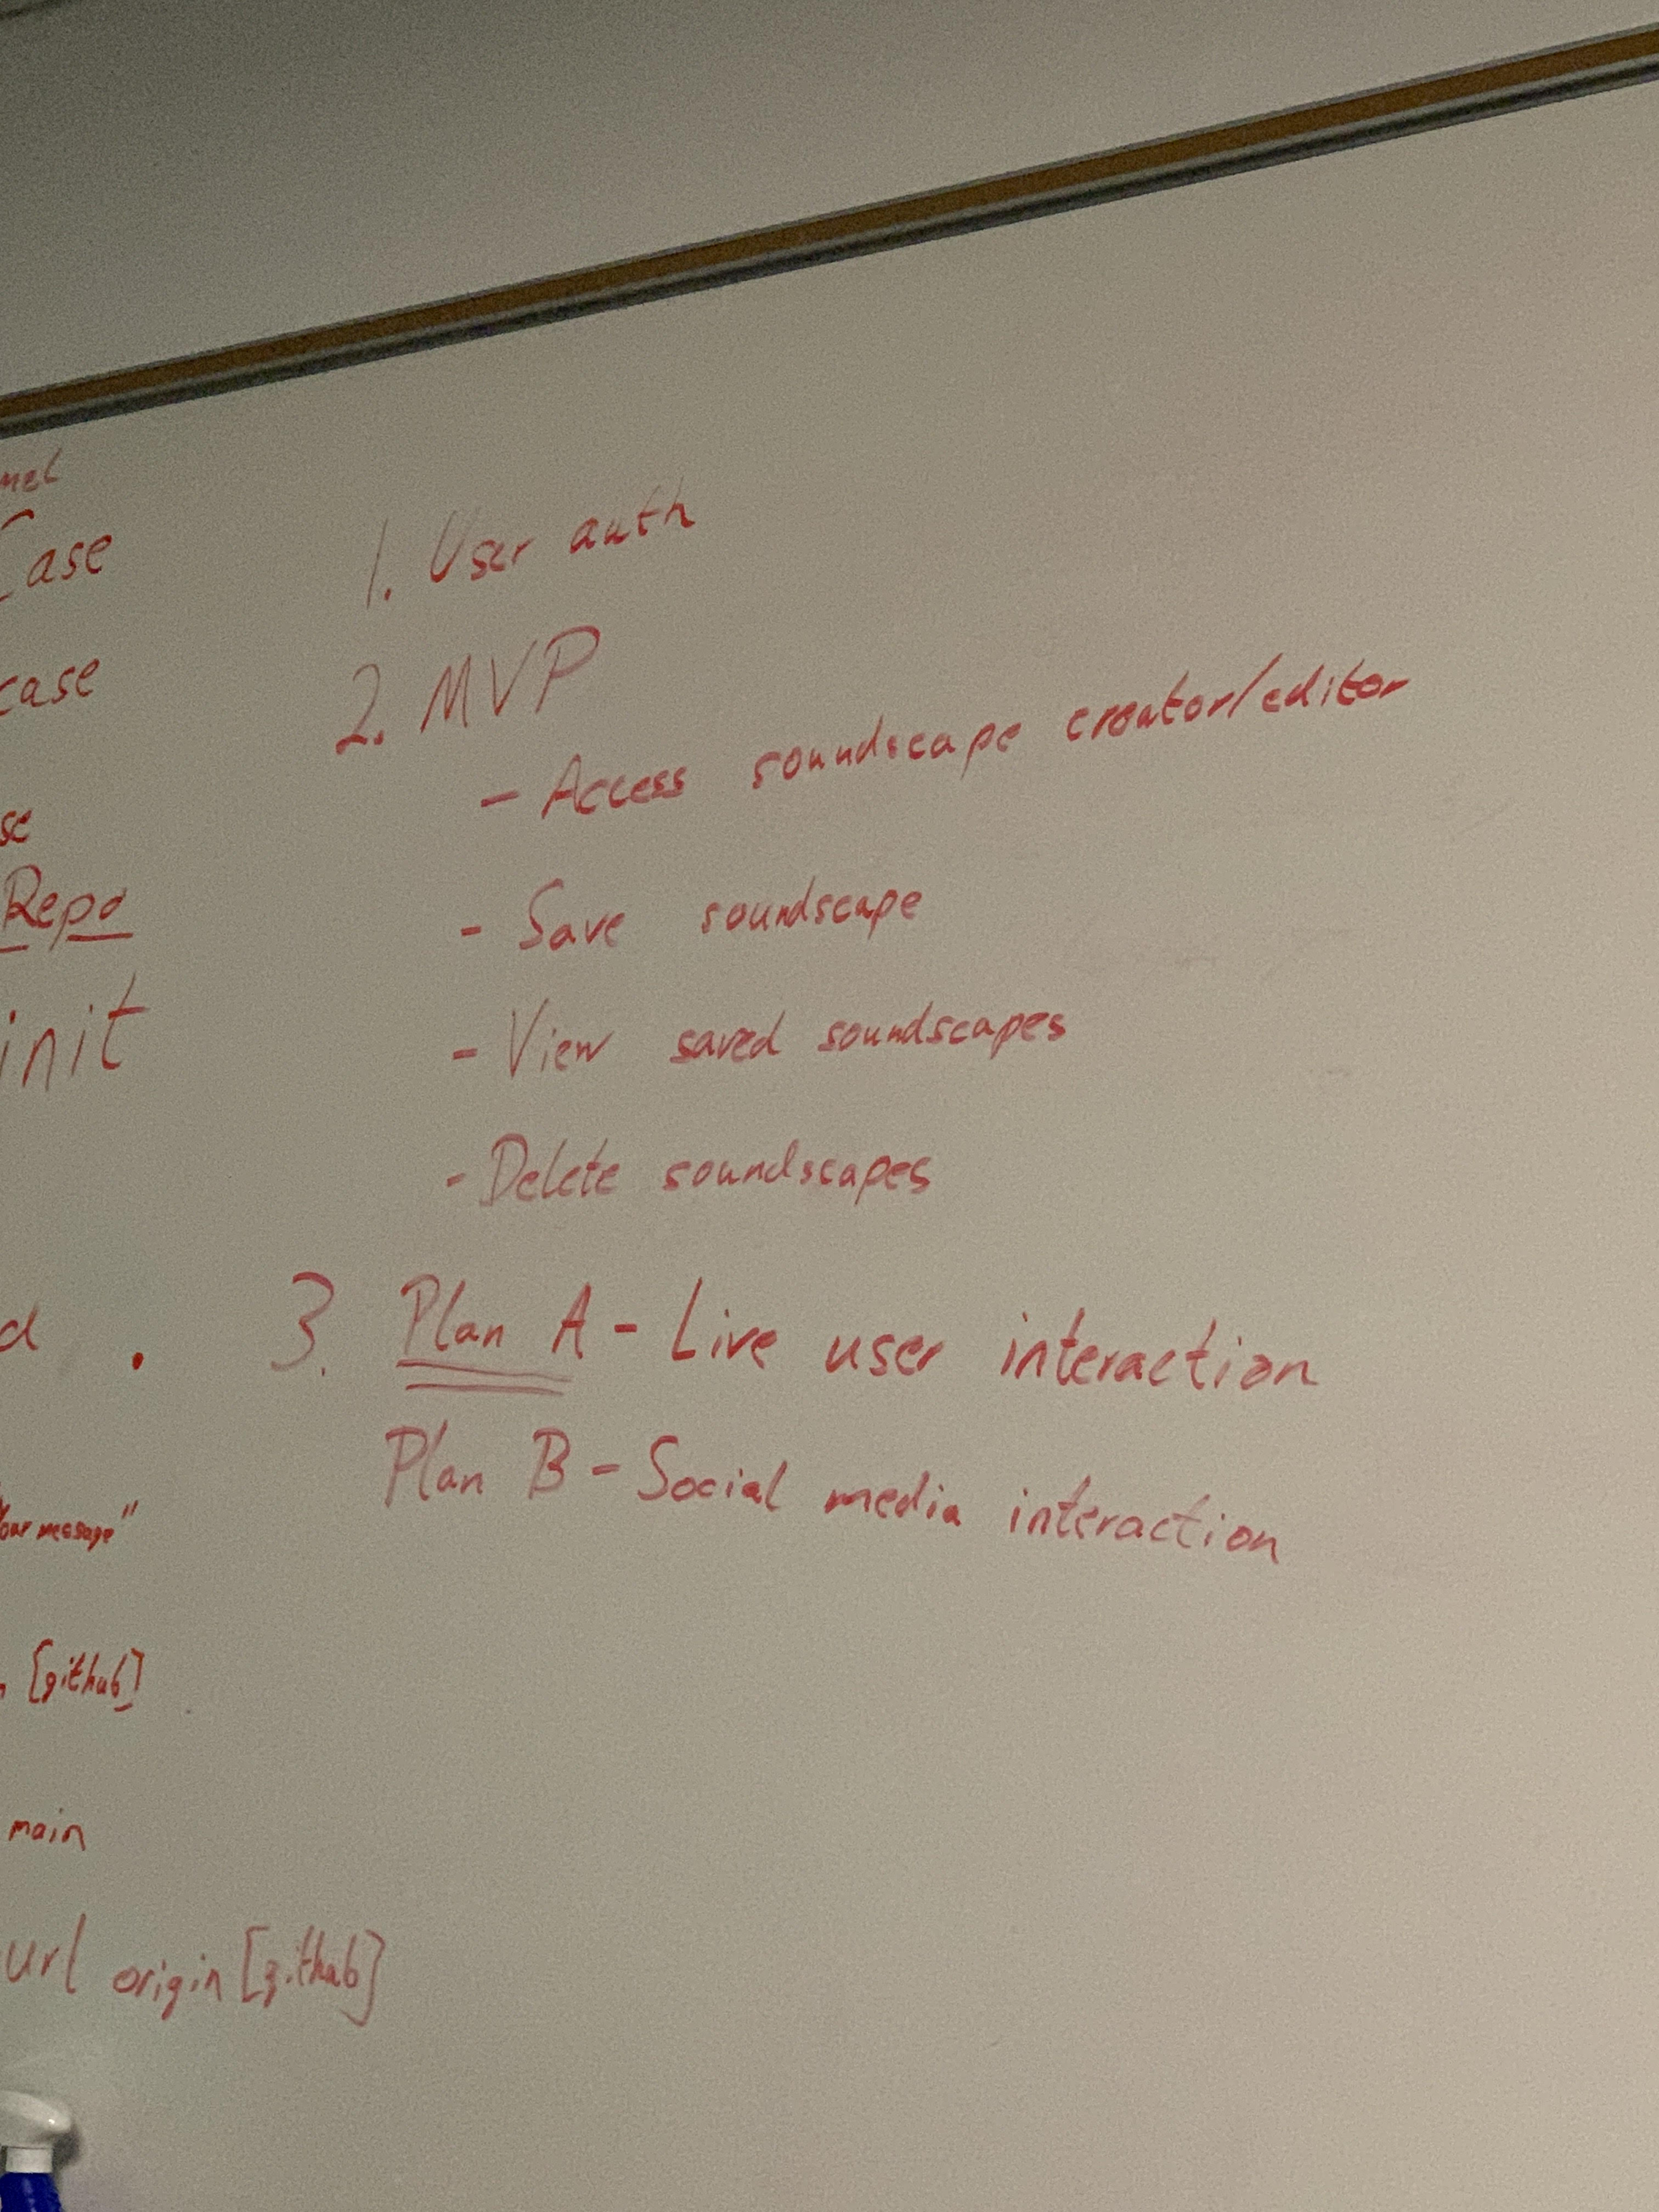 Case
case
Repo
init
your message"
[github]
main
url origin [github]
1. User auth
2. MVP
- Access soundscape creator/editor
- Save soundscape
- View saved soundscapes
- Delete soundscapes
3. Plan A - Live user interaction
Plan B - Social media interaction